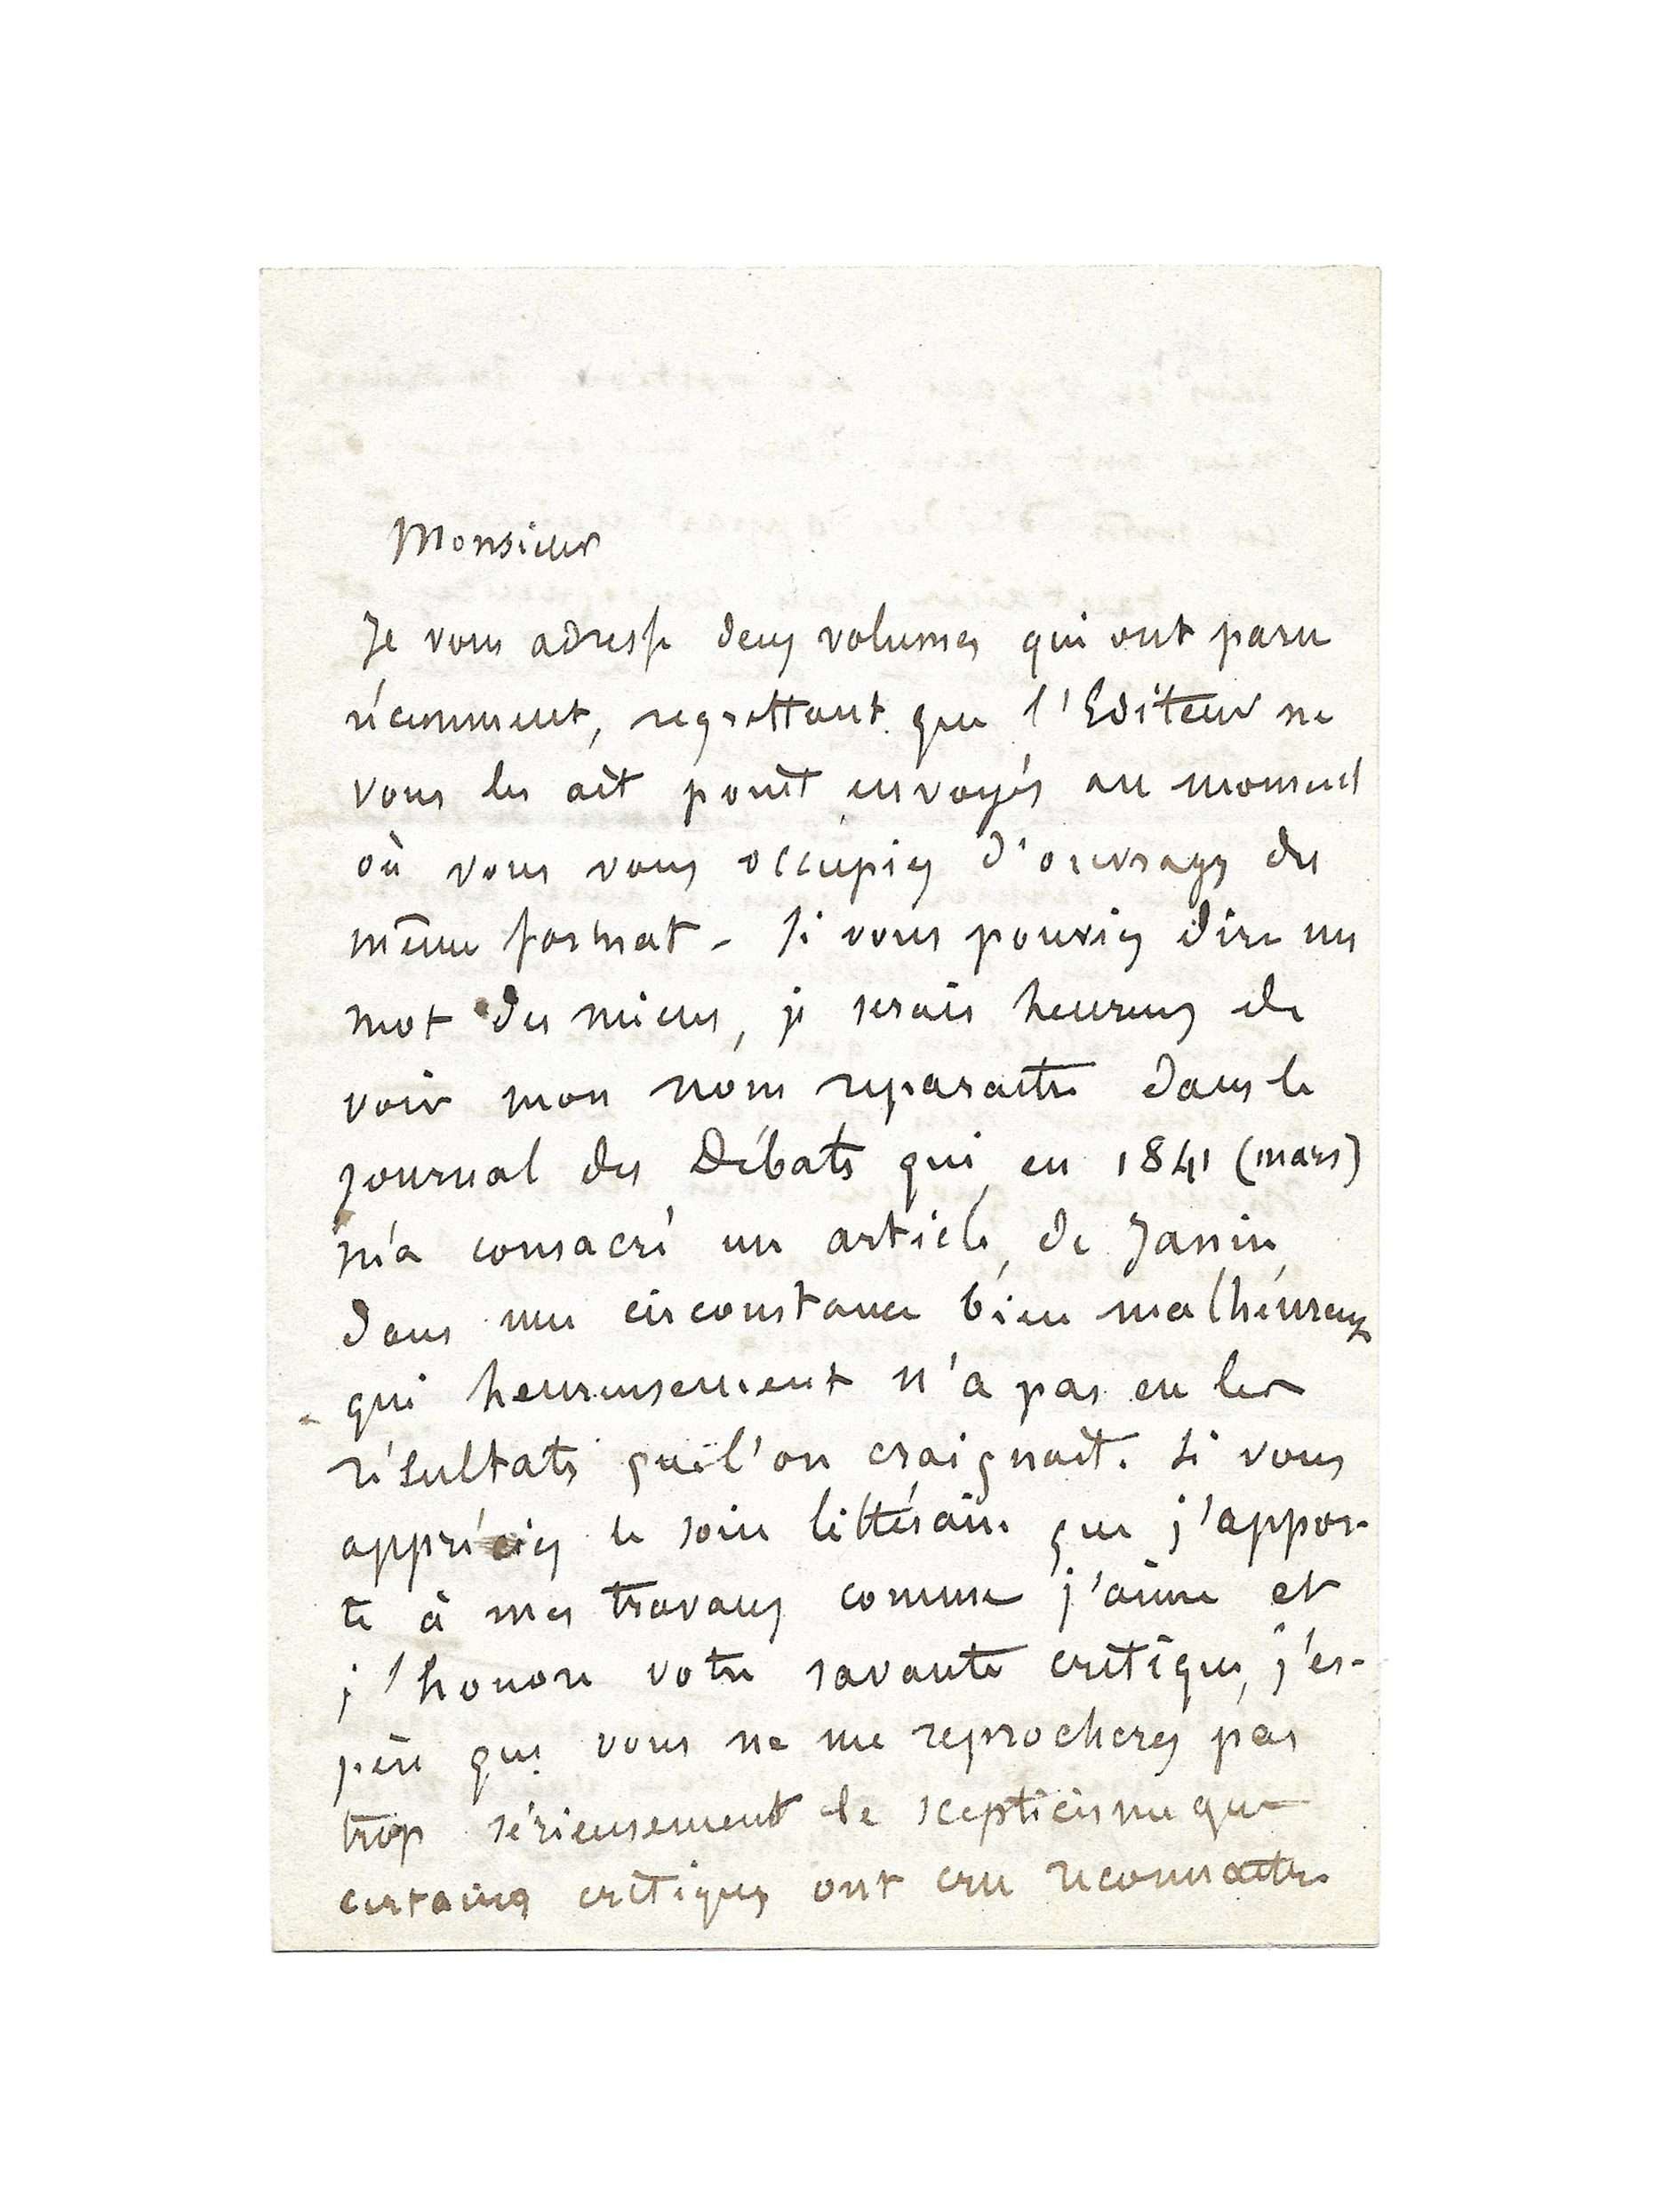 Monsieur
Je vous adresse deux volumes qui ont paru
récemment, regrettant que l'Editeur ne
vous les ait point envoyés au moment
où vous vous occupiez d'ouvrages du
même format - Si vous pouviez dire un
mot des miens, je serais heureux de
voir mon nom reparaitre dans le
journal des Débats qui, en 1841 (mars)
m'a consacré un article, de Janin,
dans une circonstance bien malheureuse
qui heureusement n'a pas eu les
résultats qu'il'on craignait. Si vous
appréciez le soin littéraire que j'appor-
te à mes travaux comme j'aime et
j'honore votre savante critique, j'es-
père que vous ne me reprocherez pas
trop sérieusement le scepticisme que
certains critiques ont cru reconnaitre